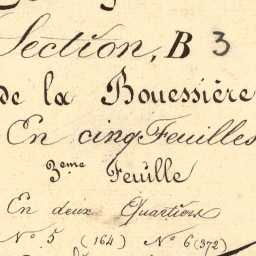 Section, B 3
de la Bouëssière
En cinq Feuilles
3.eme Feuille
En deux Quartiers
N.º 5 (164) N.º 6 (372)